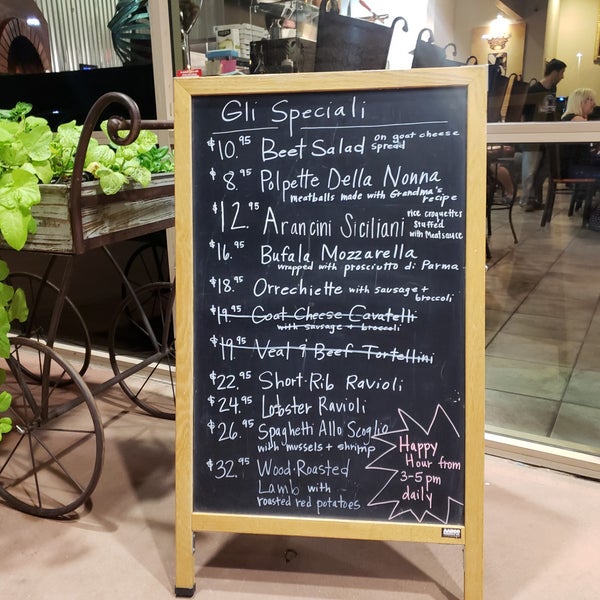 Gli Speciali
$10.95 Beet Salad on goat cheese
spread
$8.95 Polpette Della Nonna
meatballs made with Grandma's
recipe
$12.95 Arancini Siciliani rice croquettes
stuffed
with Meatsauce
$16.95 Bufala Mozzarella
wrapped with prosciutto di Parma
$18.95 Orrechiette with sausage +
broccoli
$19.95 Goat Cheese Cavatelli
with sausage + broccoli
$19.95 Veal & Beef Tortellini
$22.95 Short-Rib Ravioli
$24.95 Lobster Ravioli
$26.95 Spaghetti Allo Scoglio
with mussels + shrimp
$32.95 Wood-Roasted
Lamb with
roasted red potatoes
Happy
Hour from
3-5 pm
daily